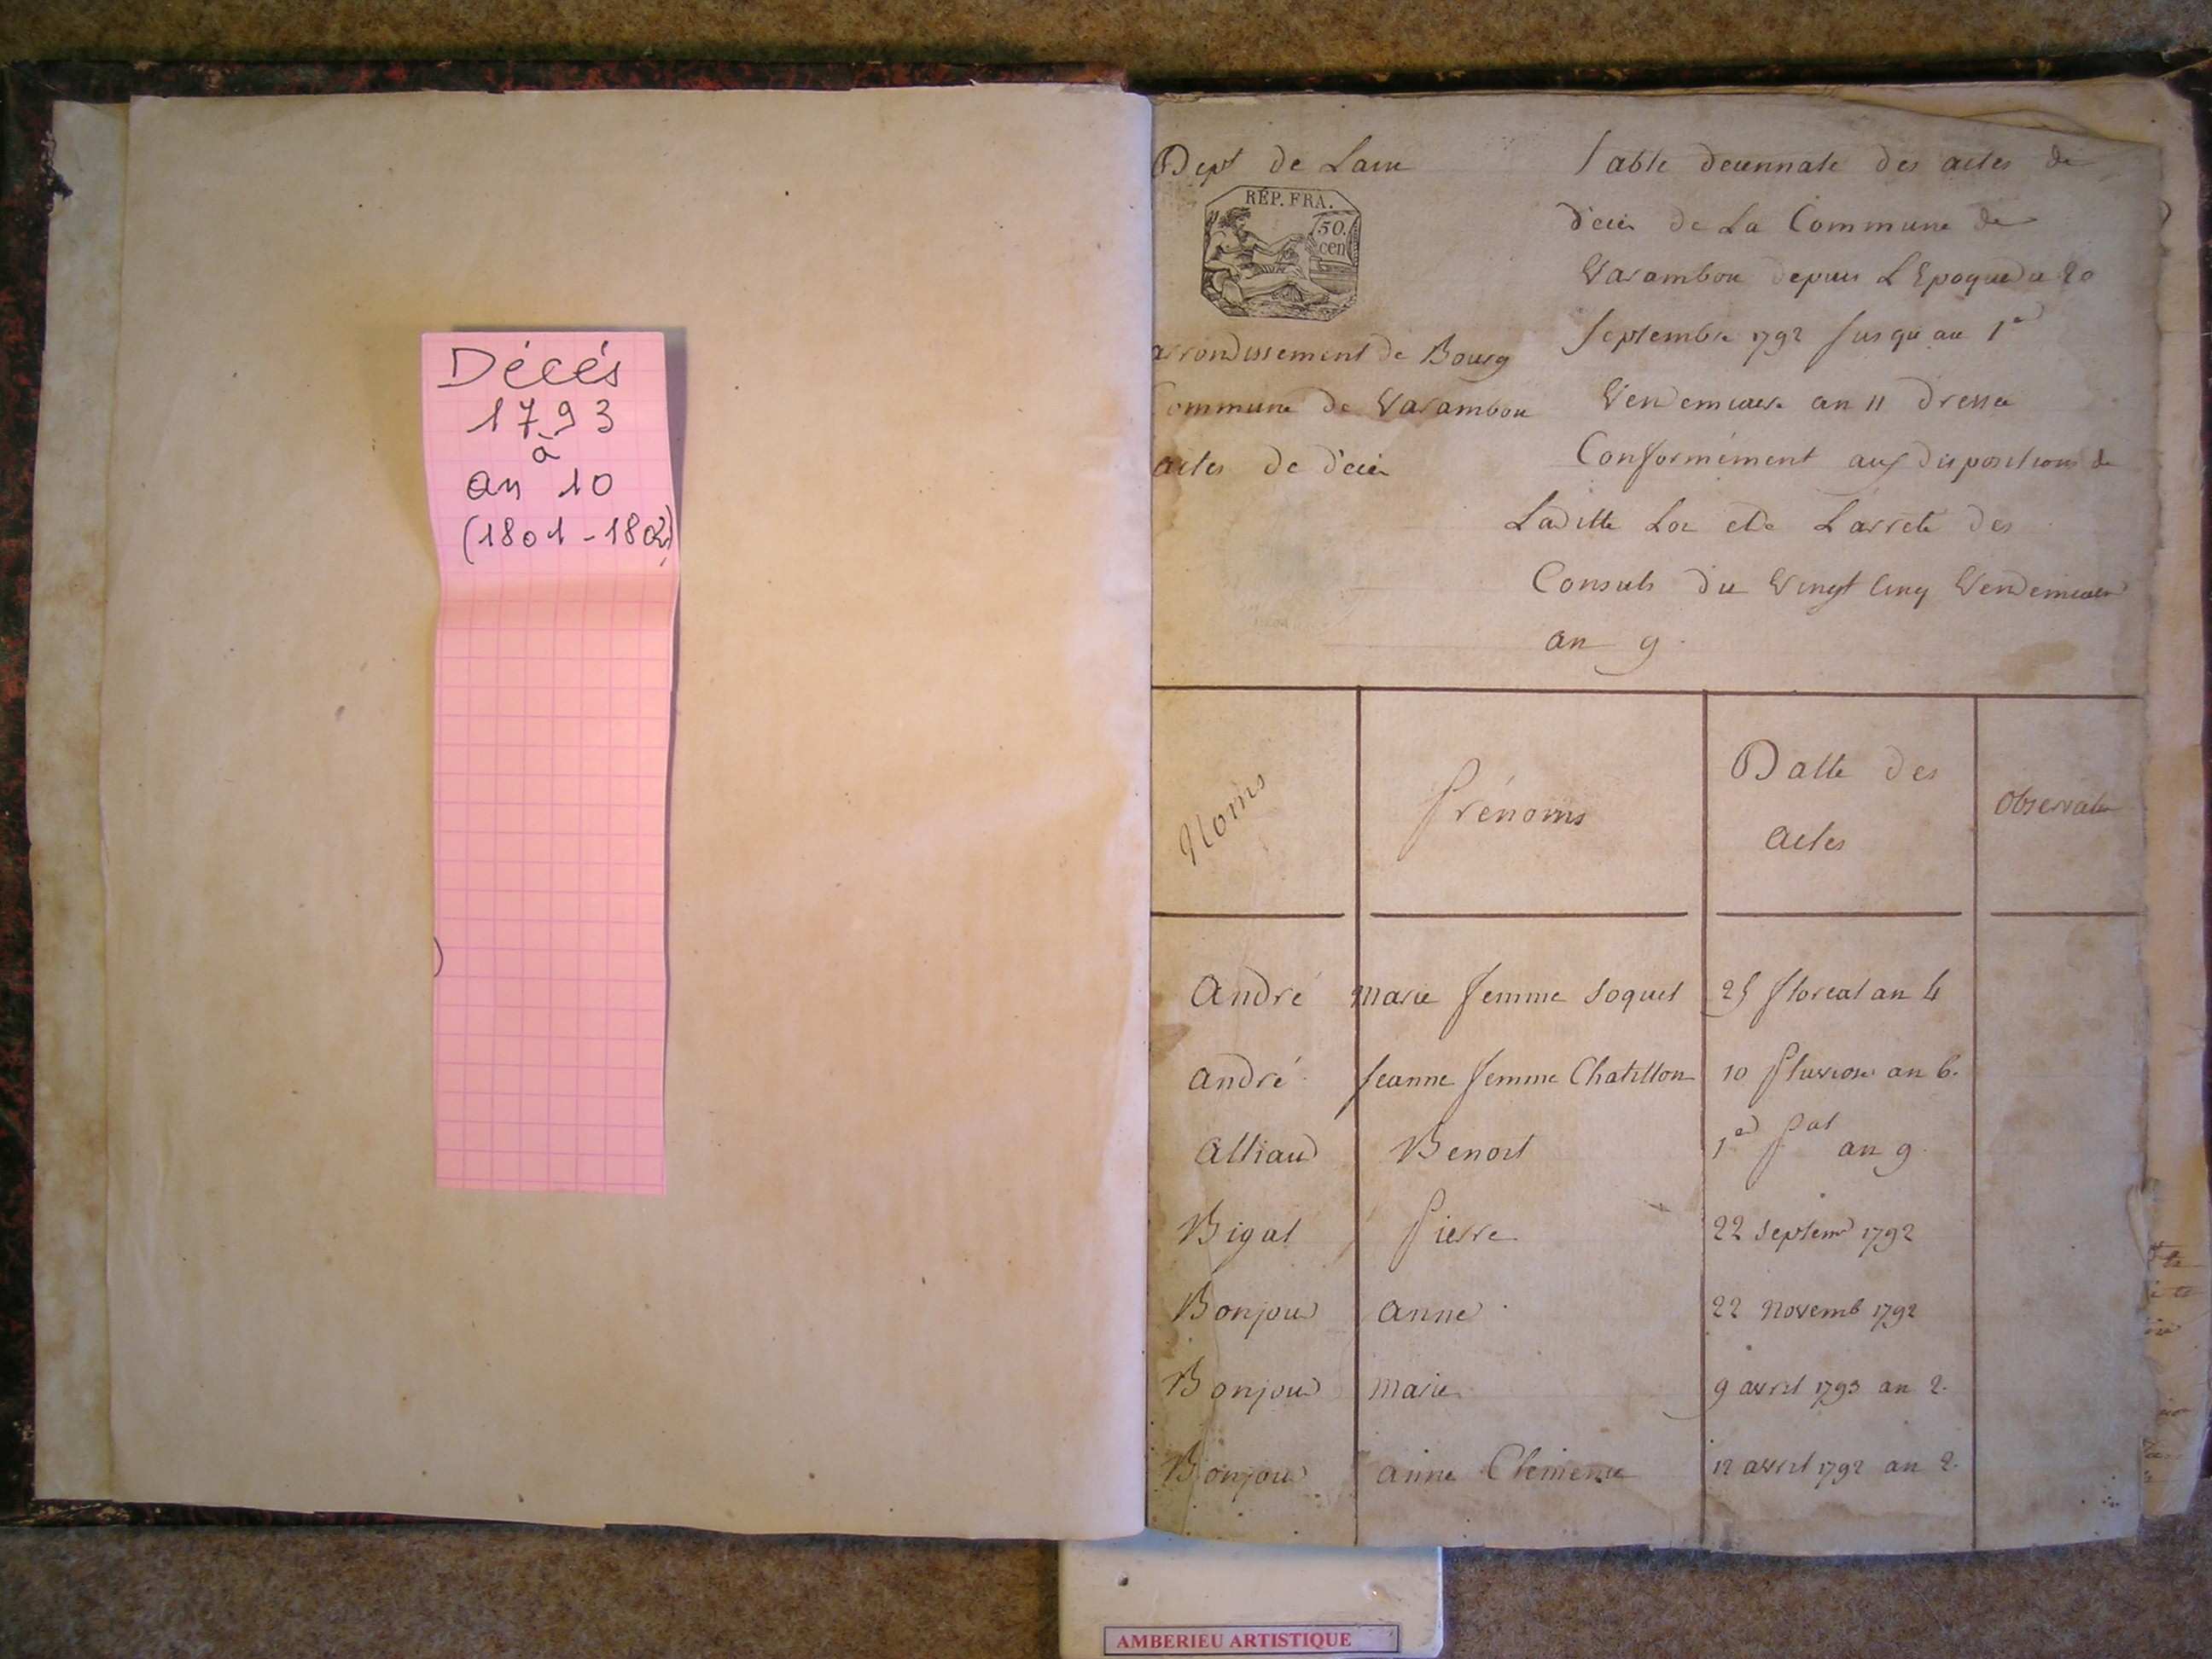 Décés
1793
à
an 10
(1801-1802)
Dept de Lain
RÉP. FRA.
50.
cen
arrondissement de Bourg
Commune de Varambon
actes de décès
Table decennale des actes de
décès de La Commune de
Varambon depuis L'Epoque du 20
Septembre 1792 Jusqu au 1er
Vendemiaire an 11 Dressée
Conformément aux dispositions de
Laditte Loi et de L'arreté des
Consuls du Vingt Cinq Vendemiaire
an 9
Noms Prénoms Datte des Observation
actes
André marie femme Soquet 25 floreal an 4
andré Jeanne femme Chatillon 10 Pluviose an 6.
Alliaud Benoit 1er Pal an 9
Bigat Pierre 22 Septem 1792
Bonjour anne 22 Novemb 1792
Bonjour marie 9 avril 1793 an 2.
Bonjour anne Clémence 12 avril 1792 an 2.
AMBERIEU ARTISTIQUE